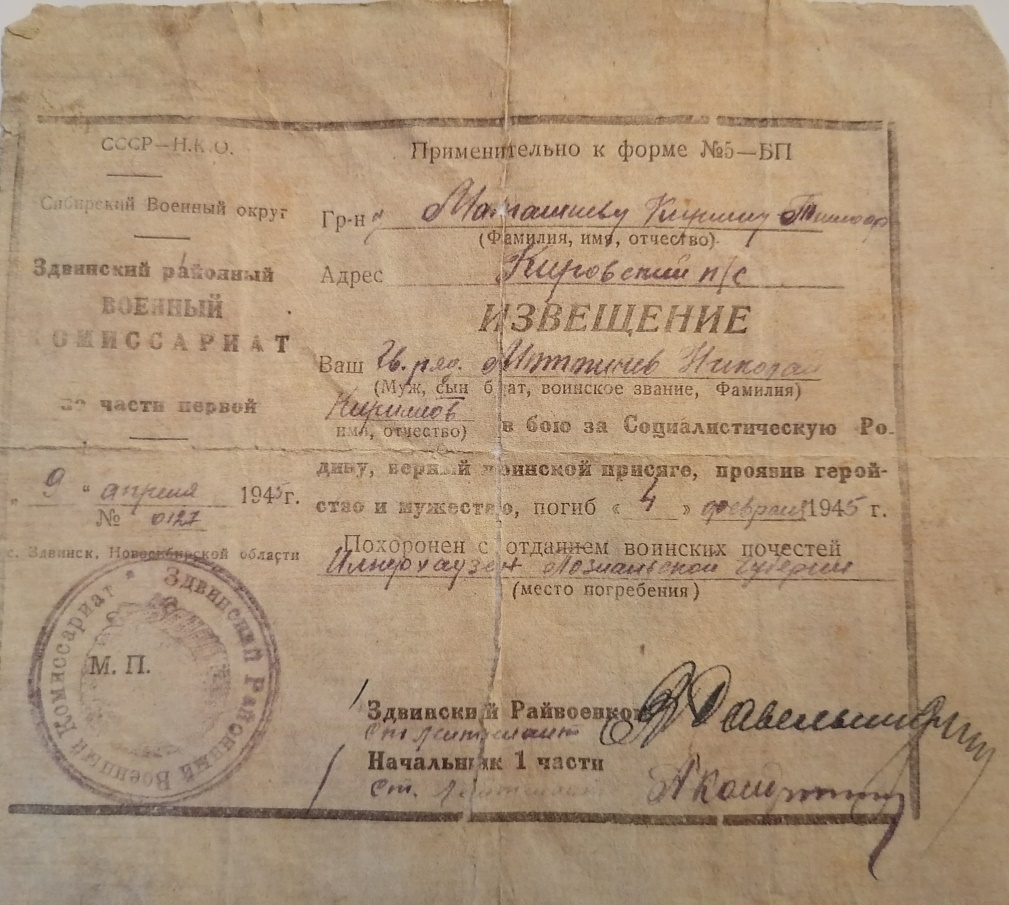 СССР—Н.К.О.
Сибирский Военный округ
Здвинский районный
ВОЕННЫЙ
КОМИССАРИАТ
по части первой
„ 9 “ апреля 1945 г.
№ 0127
с. Здвинск, Новосибирской области
М. П.
Здвинский Районный Военный Комиссариат
Применительно к форме №5—БП
Гр-н
(Фамилия, имя, отчество)
Адрес Кировский п/с
ИЗВЕЩЕНИЕ
Ваш Гв. ряд. Николай
(Муж, сын брат, воинское звание, Фамилия)
имя, отчество) в бою за Социалистическую Ро-
дину, верный воинской присяге, проявив герой-
ство и мужество, погиб « 4 » февраля 1945 г.
Похоронен с отданием воинских почестей
губернии
(место погребения)
Здвинский Райвоенком
Начальник 1 части
ст. лейтенант